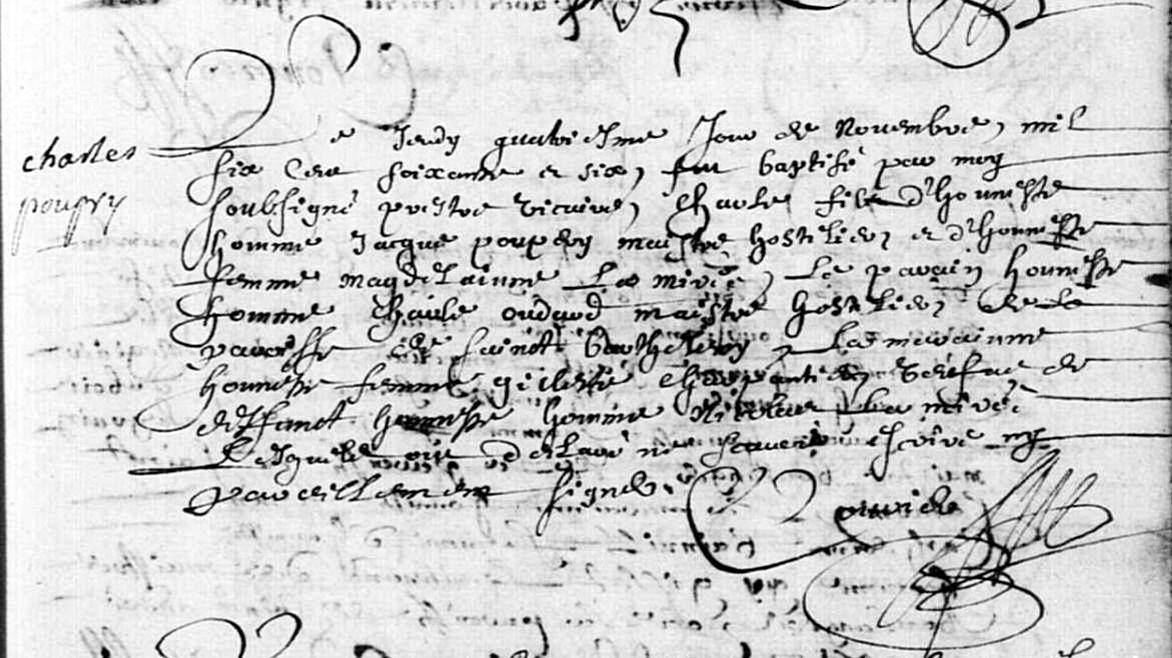 charles
poupry
Le Jeudy quatriesme Jour de Novembre, mil
six Cens soixante et six, fut baptisé par moy
soubsigné prestre vicaire, Charles filz d'honneste
homme Jacque poupry maistre hostelier, et d'honneste
femme magdelainne La mirée, Le parain honneste
homme Charles oudard maistre hostelier, de la
paroisse de sainct barthelemy, La maraine
honneste femme gillette charpentier, vefve de
deffunct honneste homme Nicolas La mirée
Lesquels ont declaré ne scavoir escrire ny
pareillement signer.